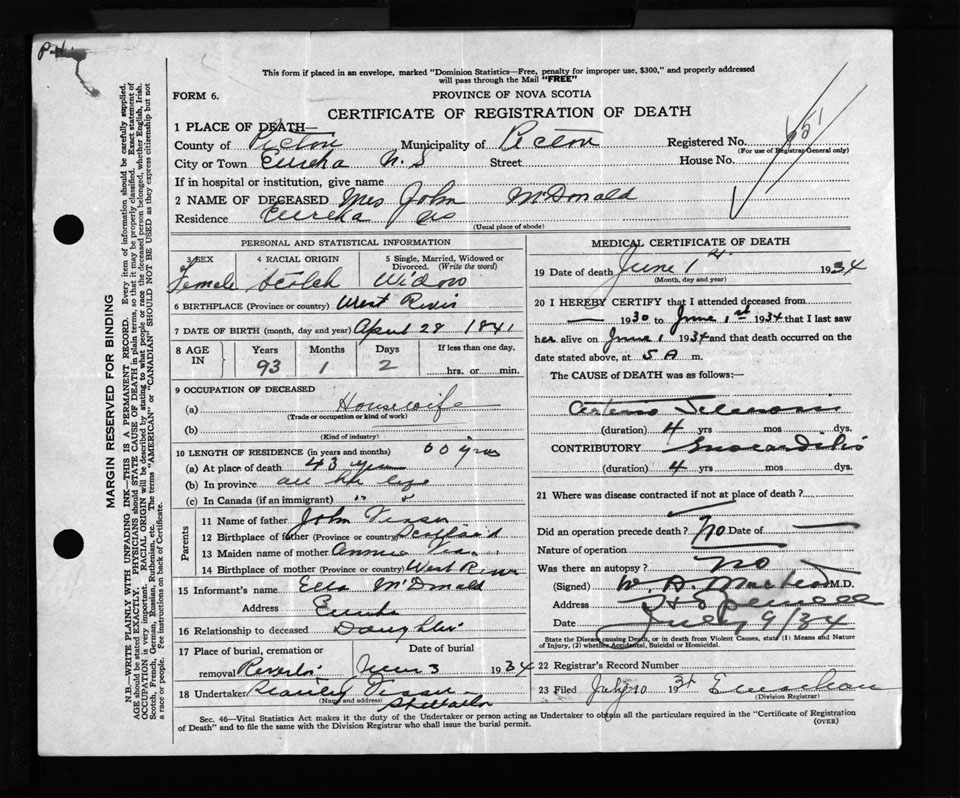 P-4
This form if placed in an envelope, marked "Dominion Statistics—Free, penalty for improper use, $300," and properly addressed
will pass through the Mail "FREE"
FORM 6.
PROVINCE OF NOVA SCOTIA
CERTIFICATE OF REGISTRATION OF DEATH
1 PLACE OF DEATH—
County of Pictou Municipality of Pictou Registered No.
(For use of Registrar General only)
City or Town Eureka N. S Street House No.
If in hospital or institution, give name
2 NAME OF DECEASED Mrs John McDonald
Residence Eureka NS
(Usual place of abode)
MARGIN RESERVED FOR BINDING
N.B.—WRITE PLAINLY WITH UNFADING INK—THIS IS A PERMANENT RECORD. Every item of information should be carefully supplied.
AGE should be stated EXACTLY. PHYSICIANS should STATE CAUSE OF DEATH in plain terms, so that it may be properly classified. Exact statement of
OCCUPATION is very important. RACIAL ORIGIN will be described by stating to what people or race the deceased person belonged, whether English, Irish,
Scotch, French, German, Russian, Ruthenian, etc. The terms "AMERICAN" or "CANADIAN" SHOULD NOT BE USED as they express citizenship but not
a race or people. See instructions on back of Certificate.
PERSONAL AND STATISTICAL INFORMATION
3 SEX
4 RACIAL ORIGIN
5 Single, Married, Widowed or
Divorced. (Write the word)
Female Scotch Widow
6 BIRTHPLACE (Province or country) West River
7 DATE OF BIRTH (month, day and year) April 28 1841
8 AGE
IN
Years Months Days If less than one day.
93 1 2
hrs. or min.
9 OCCUPATION OF DECEASED
(a) Housewife
(Trade or occupation or kind of work)
(b)
(Kind of industry)
10 LENGTH OF RESIDENCE (in years and months) 60 yrs
(a) At place of death 43 years
(b) In province all her life
(c) In Canada (if an immigrant) " "
Parents
11 Name of father John
12 Birthplace of father (Province or country) Scotland
13 Maiden name of mother Annie
14 Birthplace of mother (Province or country) West River
15 Informant's name Ella McDonald
Address Eureka
16 Relationship to deceased Daughter
17 Place of burial, cremation or
removal
Date of burial
June 3 1934
18 Undertaker
(Name and address)
Stellarton
MEDICAL CERTIFICATE OF DEATH
19 Date of death June 1st 1934
(Month, day and year)
20 I HEREBY CERTIFY that I attended deceased from
— 1930 to June 1st 1934 that I last saw
her alive on June 1 1934 and that death occurred on the
date stated above, at 5 A m.
The CAUSE OF DEATH was as follows:—
(duration) 4 yrs mos dys.
CONTRIBUTORY
(duration) 4 yrs mos dys.
21 Where was disease contracted if not at place of death?
Did an operation precede death? No Date of —
Nature of operation —
Was there an autopsy? No
(Signed) W A MacLeod M.D.
Address
Date July 9/34
State the Disease causing Death, or in death from Violent Causes, state (1) Means and Nature
of Injury, (2) whether Accidental, Suicidal or Homicidal.
22 Registrar's Record Number
23 Filed July 10 1934
(Division Registrar)
Sec. 46—Vital Statistics Act makes it the duty of the Undertaker or person acting as Undertaker to obtain all the particulars required in the "Certificate of Registration
of Death" and to file the same with the Division Registrar who shall issue the burial permit.
(OVER)